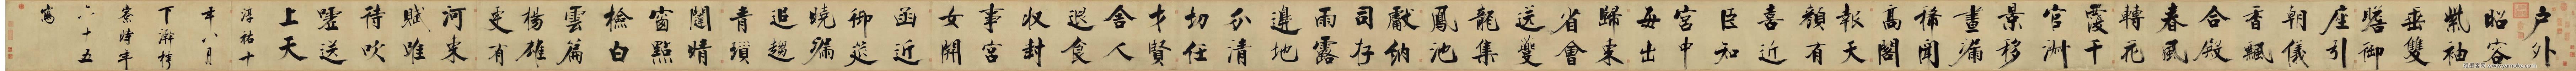 户外
昭容
紫袖
垂雙
瞻御
座引
朝儀
香飄
合殿
春風
轉花
覆千
官淑
景移
晝漏
稀聞
高閣
報天
顏有
喜近
臣知
宮中
每出
歸東
省會
送夔
龍集
鳳池
獻納
司存
雨露
邊地
分清
切任
才賢
舍人
退食
收封
事宮
女開
函近
御筵
曉漏
追趨
青瑣
闥晴
窗點
檢白
雲篇
楊雄
更有
河東
賦唯
待吹
噓送
上天
淳祐十
年八月
下澣樗
寮時年
六十五
寫
www.yamoke.com